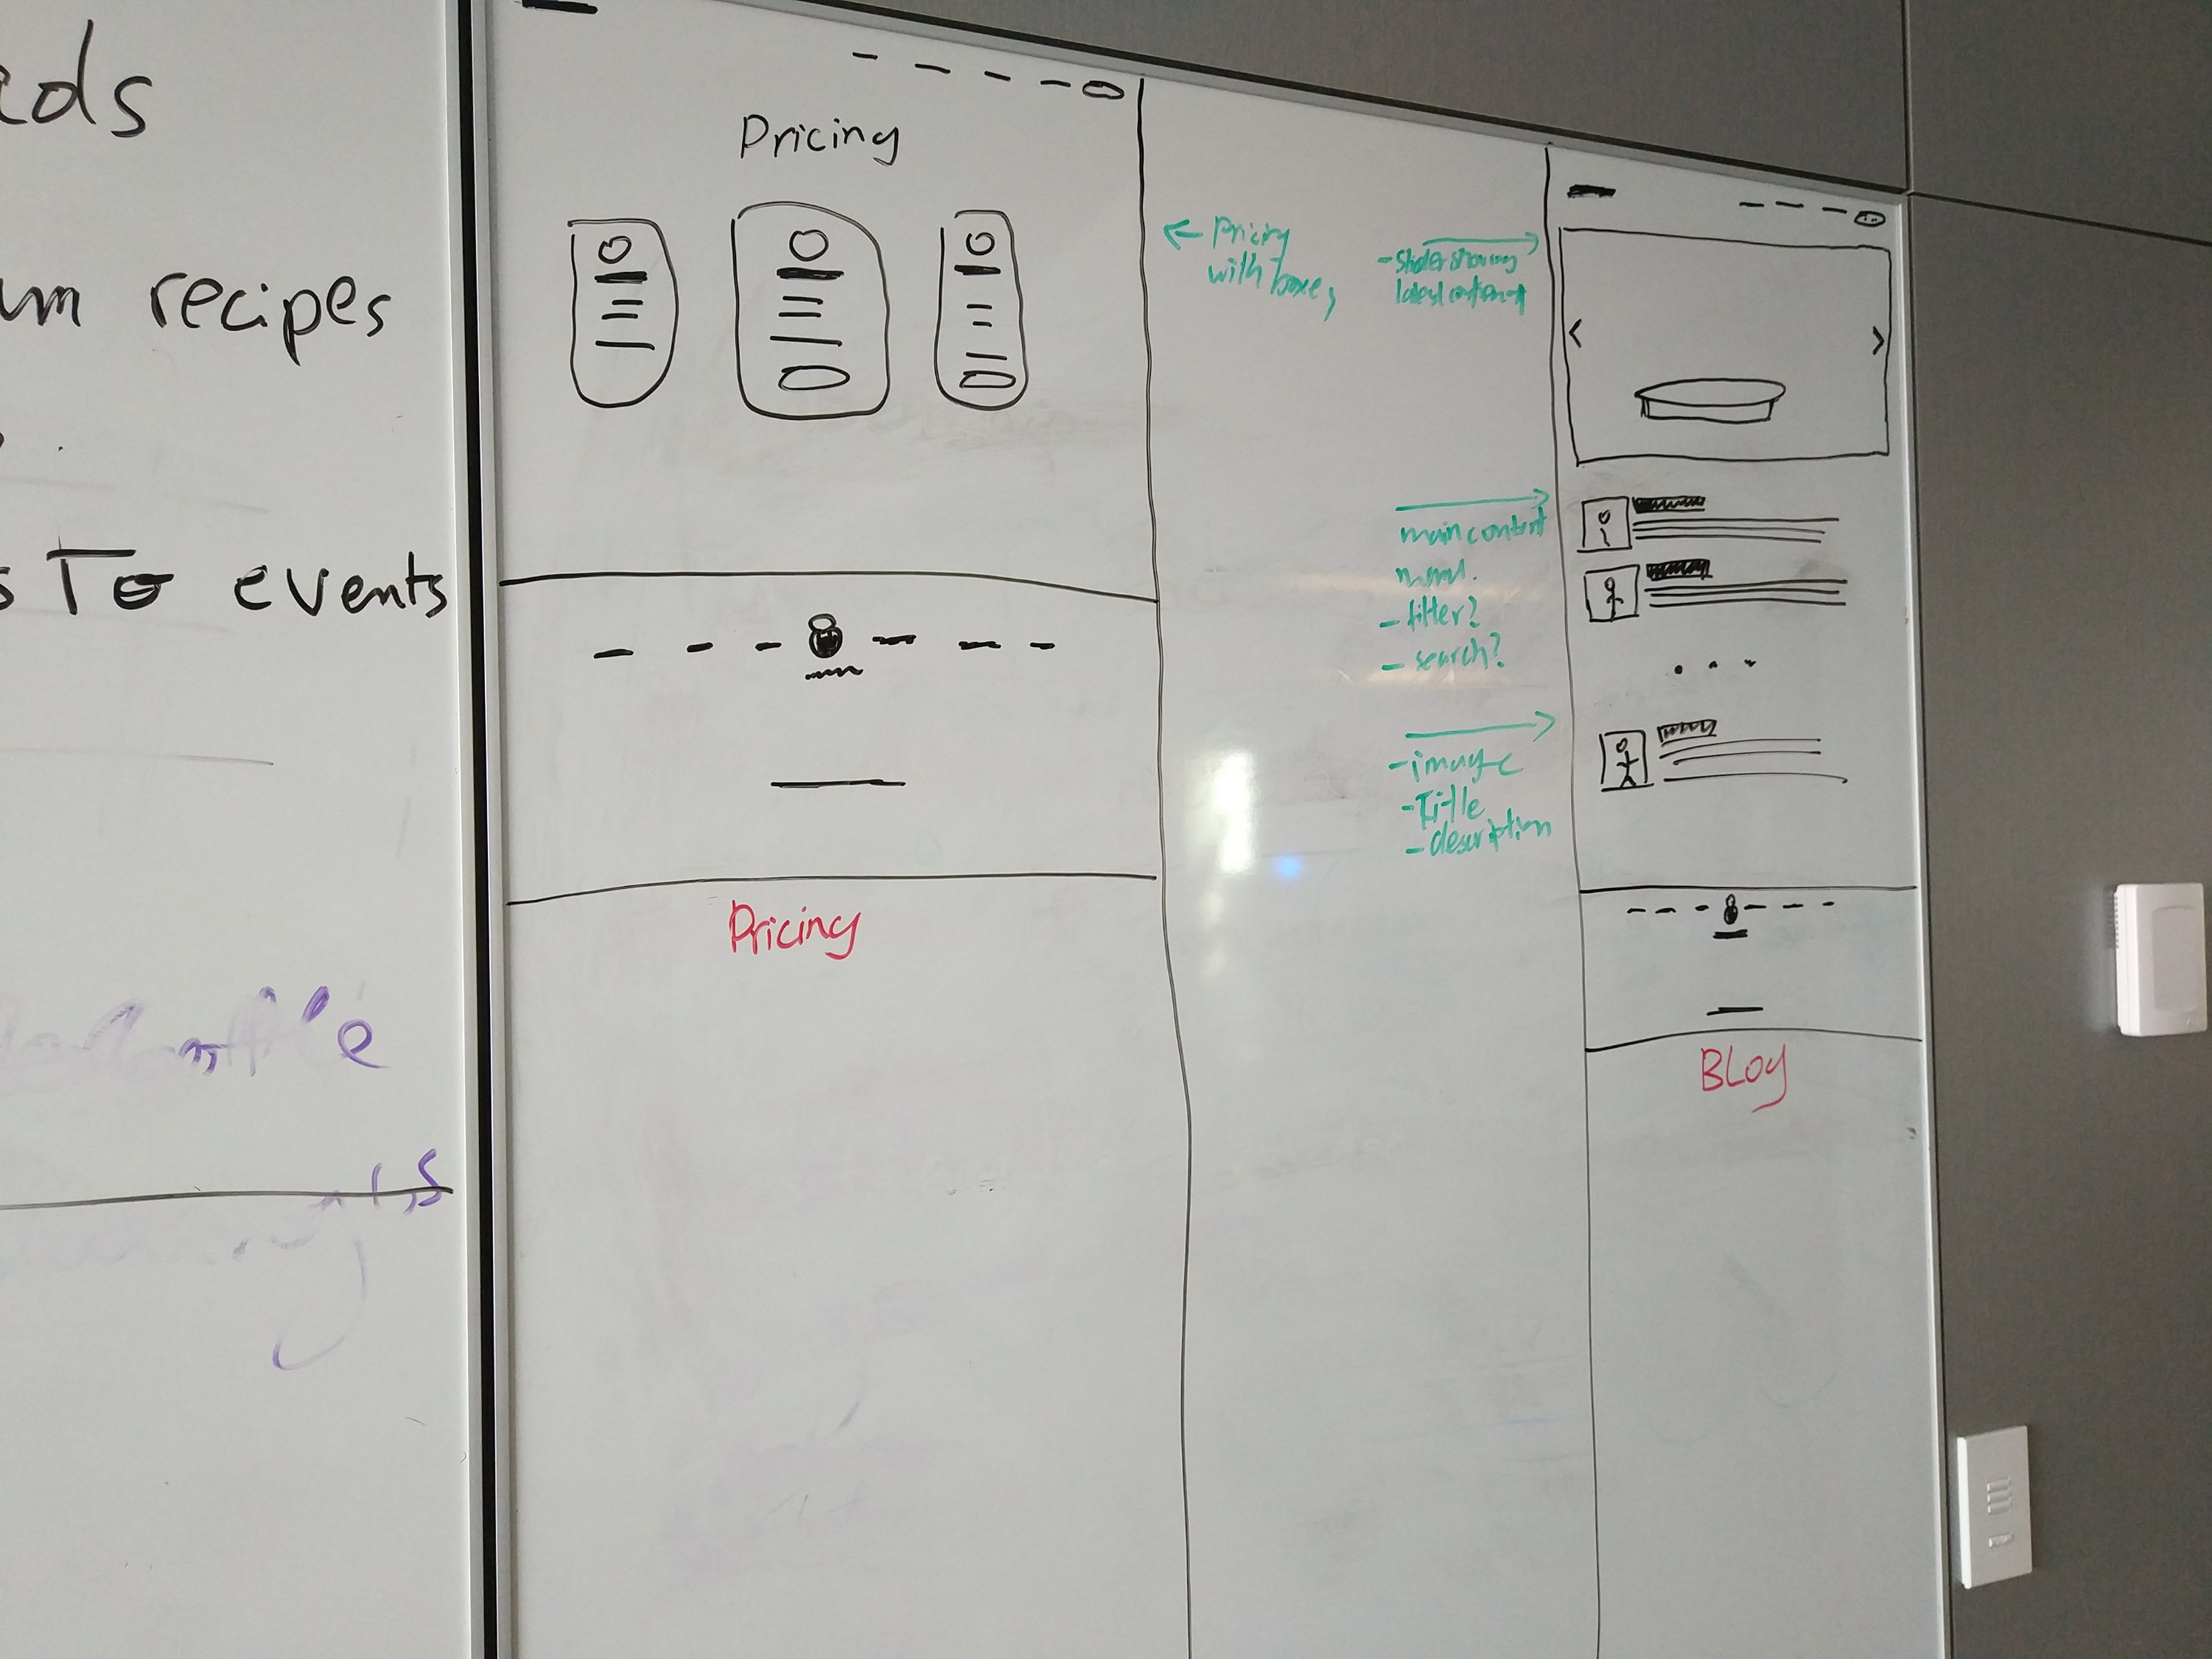 ads
um recipes
s To events
Pricing
← Pricing
with boxes
Pricing
- Slider showing
latest content
main content
- filter?
- search?
- image
- Title
- description
BLog